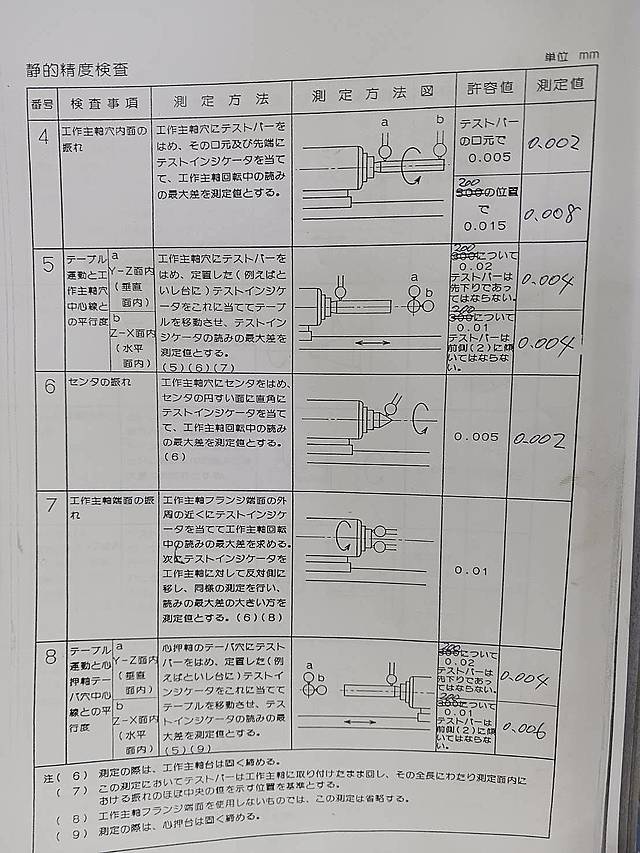 静的精度検査
単位 mm
番号 検査事項 測定方法 測定方法図 許容値 測定値
4
工作主軸穴内面の
振れ
工作主軸穴にテストバーを
はめ、その口元及び先端に
テストインジケータを当て
て、工作主軸回転中の読み
の最大差を測定値とする。
a
b
テストバー
の口元で
0.005
0.002
200
300の位置
で
0.015
0.008
5
テーブル
運動と工
作主軸穴
中心線と
の平行度
a
Y-Z面内
(垂直
面内)
b
Z-X面内
(水平
面内)
工作主軸穴にテストバーを
はめ、定置した(例えばと
いし台に)テストインジケ
ータをこれに当ててテーブ
ルを移動させ、テストイン
ジケータの読みの最大差を
測定値とする。
(5)(6)(7)
a
b
200
300について
0.02
テストバーは
先下りであっ
てはならない。
0.004
200
300について
0.01
テストバーは
前側(2)に傾
いてはならな
い。
0.004
6
センタの振れ
工作主軸穴にセンタをはめ、
センタの円すい面に直角に
テストインジケータを当て
て、工作主軸回転中の読み
の最大差を測定値とする。
(6)
0.005
0.002
7
工作主軸端面の振
れ
工作主軸フランジ端面の外
周の近くにテストインジケ
ータを当てて工作主軸回転
中の読みの最大差を求める。
次にテストインジケータを
工作主軸に対して反対側に
移し、同様の測定を行い、
読みの最大差の大きい方を
測定値とする。(6)(8)
0.01
8
テーブル
運動と心
押軸テー
パ穴中心
線との平
行度
a
Y-Z面内
(垂直
面内)
b
Z-X面内
(水平
面内)
心押軸のテーパ穴にテスト
バーをはめ、定置した(例
えばといし台に)テストイ
ンジケータをこれに当てて
テーブルを移動させ、テス
トインジケータの読みの最
大差を測定値とする。
(5)(9)
a
b
200
300について
0.02
テストバーは
先下りであっ
てはならない。
0.004
200
300について
0.01
テストバーは
前側(2)に傾
いてはならない。
0.006
注(6) 測定の際は、工作主軸台は固く締める。
(7) この測定においてテストバーは工作主軸に取り付けたまま回し、その全長にわたり測定面内に
おける振れのほぼ中央の値を示す位置を基準とする。
(8) 工作主軸フランジ端面を使用しないものでは、この測定は省略する。
(9) 測定の際は、心押台は固く締める。